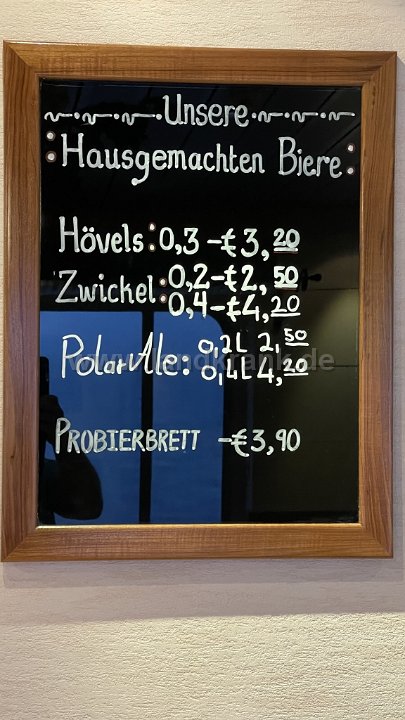 Unsere
Hausgemachten Biere
Hövels: 0,3 - € 3,20
Zwickel: 0,2 - € 2,50
0,4 - € 4,20
Polar Ale: 0,2L 2,50
0,4L 4,20
www.landkrank.de
PROBIERBRETT - € 3,90